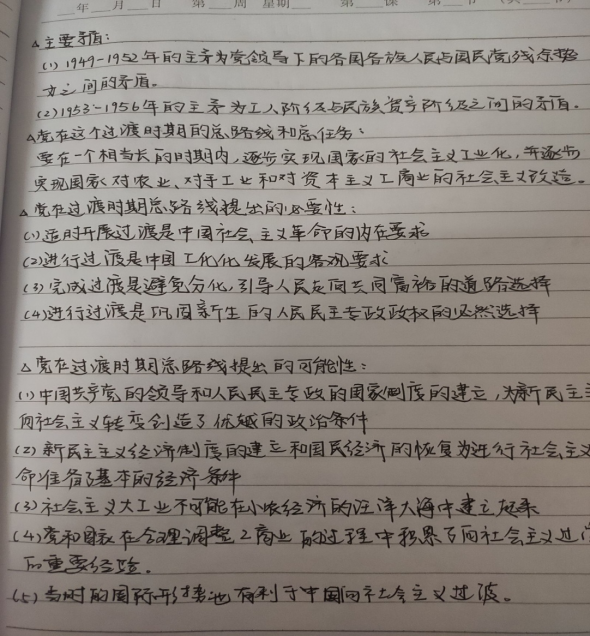 年 月 日 第 周 星期 第 课 第
△主要矛盾:
(1) 1949-1952年的主矛为党领导下的各国各族人民与国民党残余势
力之间的矛盾。
(2) 1953-1956年的主矛为工人阶级与民族资产阶级之间的矛盾。
△党在这个过渡时期的总路线和总任务:
要在一个相当长的时期内,逐步实现国家的社会主义工业化,并逐步
实现国家对农业、对手工业和对资本主义工商业的社会主义改造。
△党在过渡时期总路线提出的必要性:
(1)适时开展过渡是中国社会主义革命的内在要求
(2)进行过渡是中国工化化发展的客观要求
(3)完成过渡是避免分化,引导人民走向共同富裕的道路选择
(4)进行过渡是巩固新生的人民民主专政政权的必然选择
△党在过渡时期总路线提出的可能性:
(1)中国共产党的领导和人民民主专政的国家制度的建立,为新民主主
向社会主义转变创造了优越的政治条件
(2)新民主主义经济制度的建立和国民经济的恢复为进行社会主义
命准备了基本的经济条件
(3)社会主义大工业不可能在小农经济的汪洋大海中建立起来
(4)党和国家在合理调整工商业的过程中积累了向社会主义过
的重要经验。
(5)当时的国际形势也有利于中国向社会主义过渡。